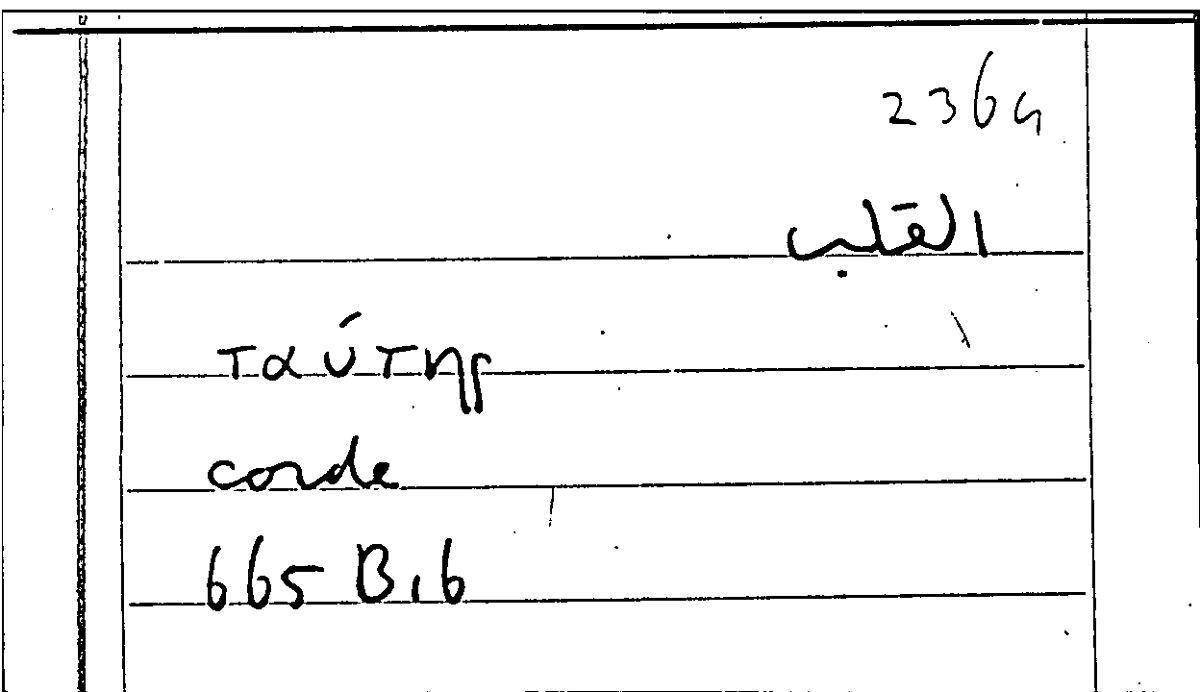 2364
القلب
ταύτης
corde
665 B16